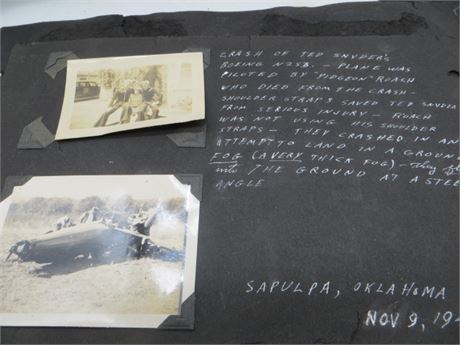 CRASH OF TED SNYDER'S
BOEING N25B. - PLANE WAS
PILOTED BY "PIDGEON" ROACH
WHO DIED FROM THE CRASH-
SHOULDER STRAPS SAVED TED SNYDER
FROM SERIOUS INJURY - ROACH
WAS NOT USING HIS SHOULDER
STRAPS - THEY CRASHED IN AN
ATTEMPT TO LAND IN A GROUND
FOG (A VERY THICK FOG) - they
into THE GROUND AT A STEE
ANGLE
SAPULPA, OKLAHOMA
NOV 9, 19